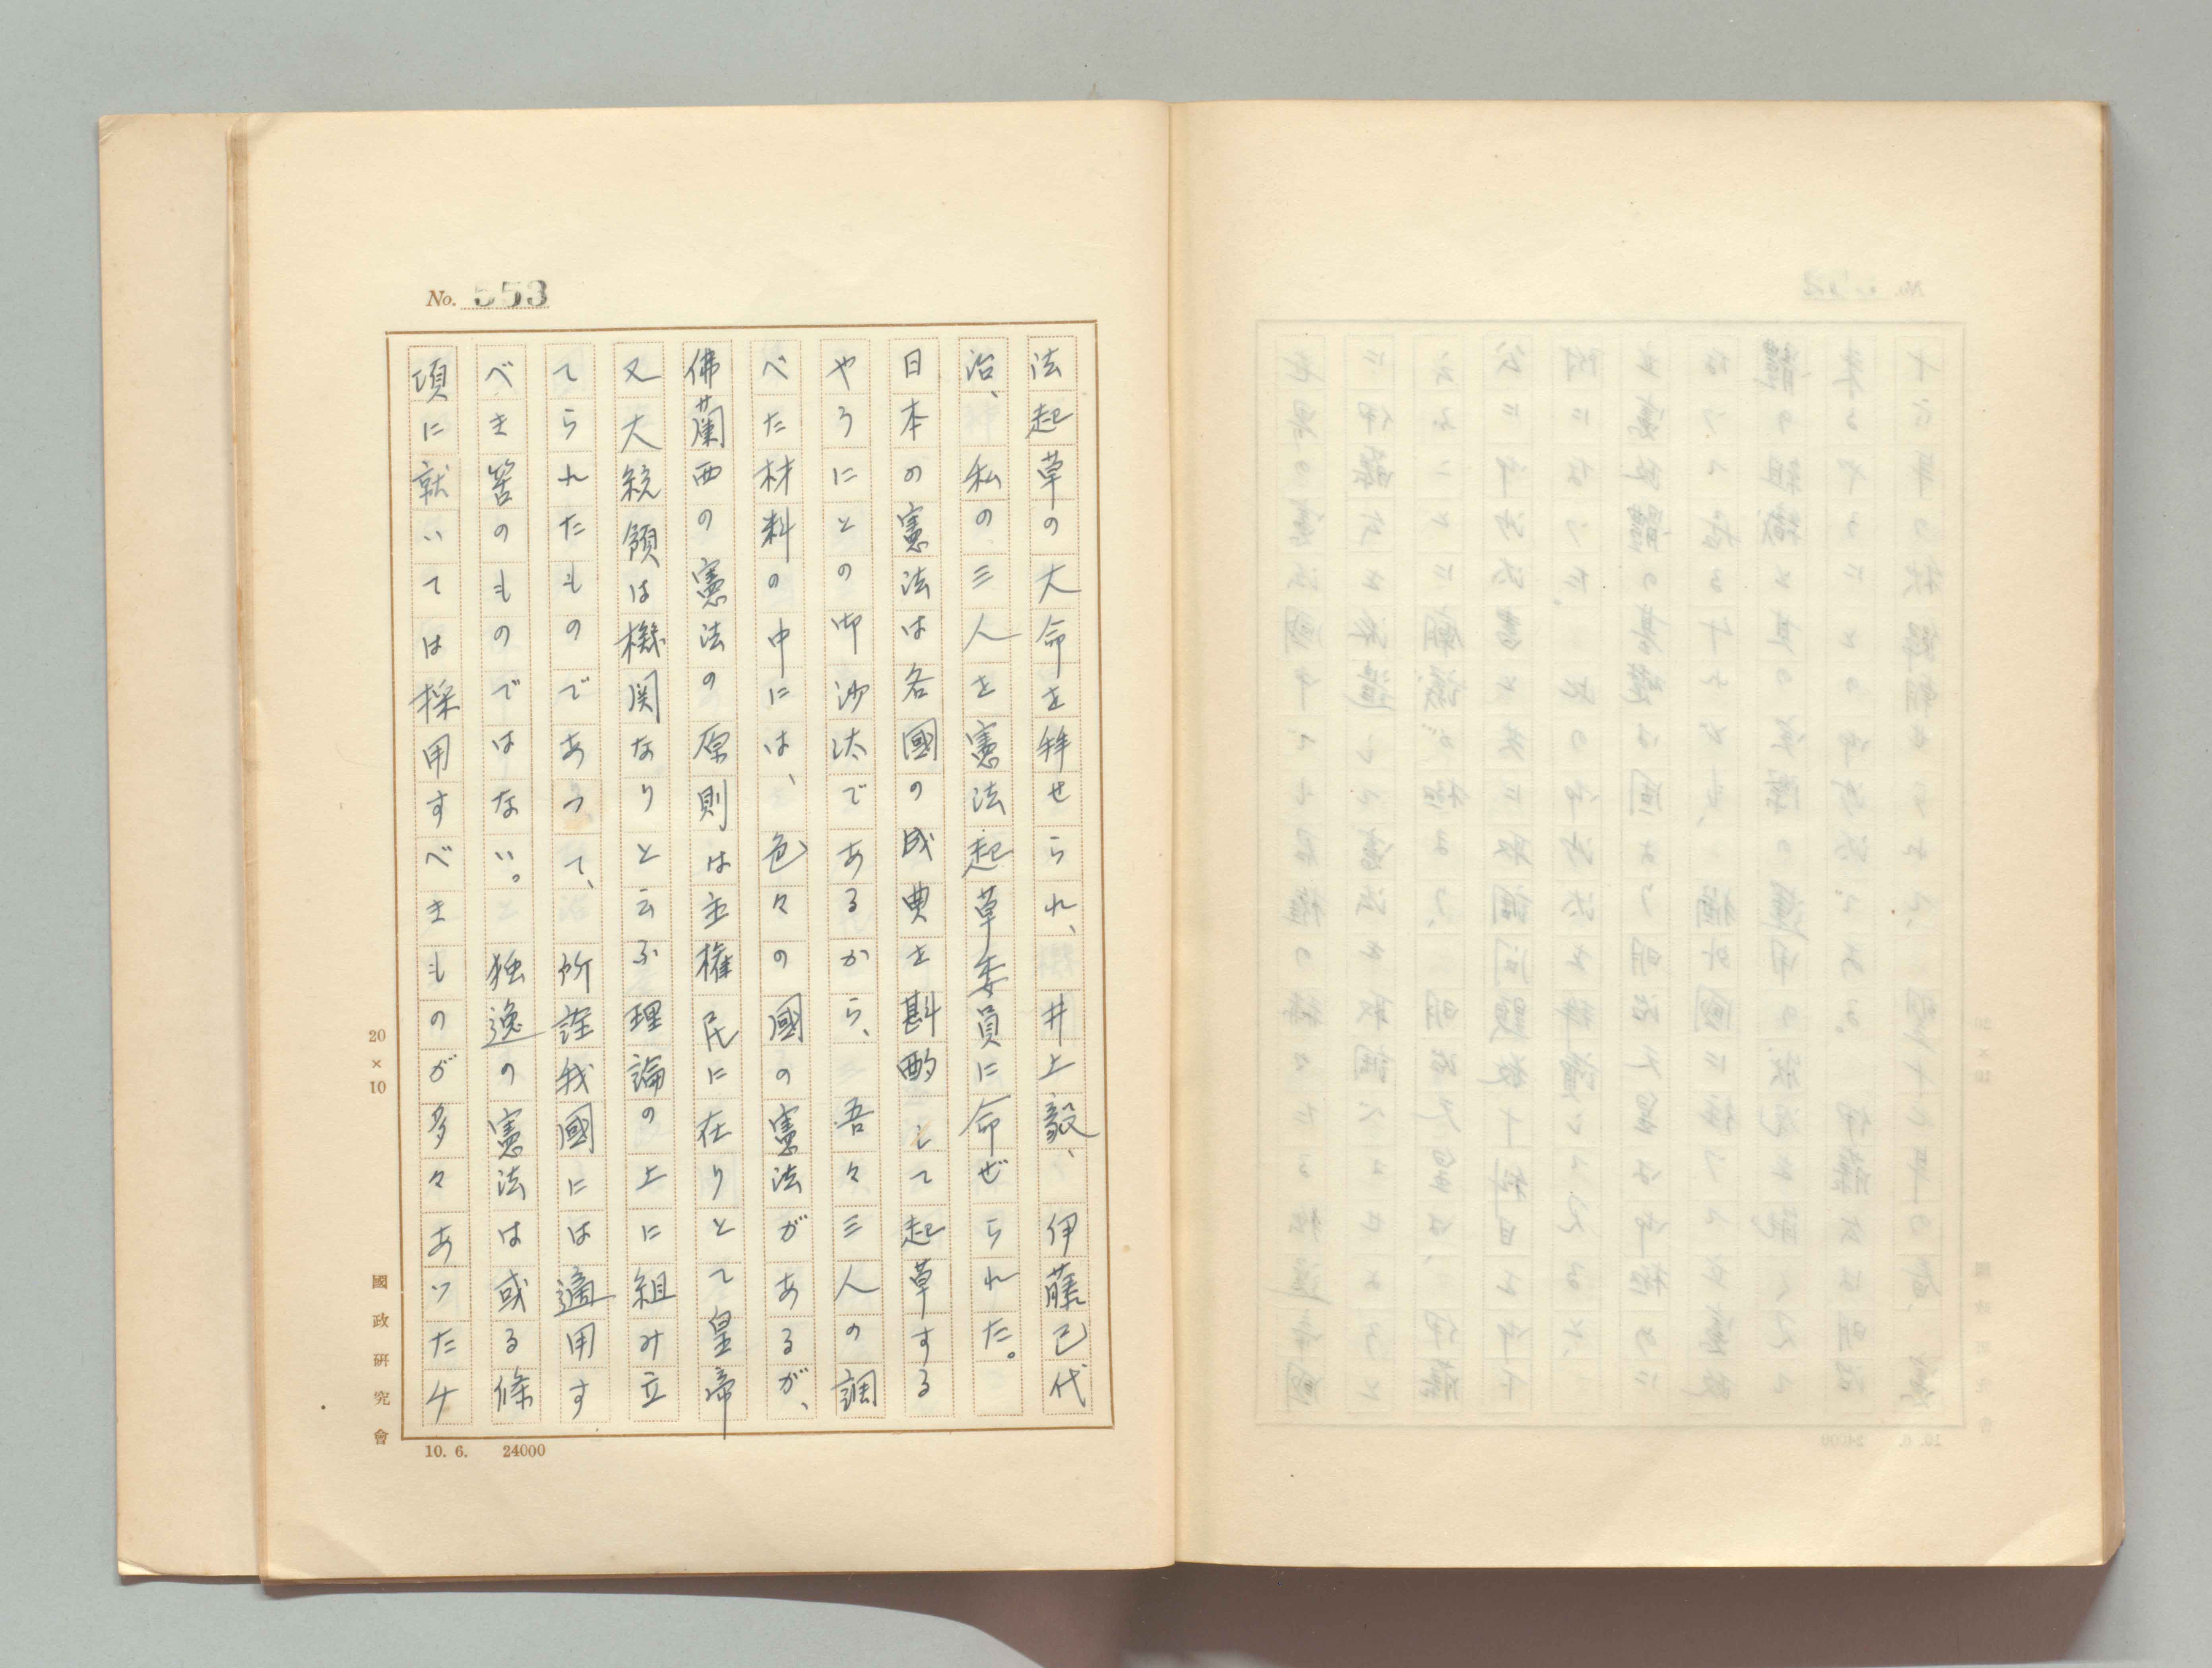 No. 553
法起草の大命を拜せられ、井上毅、伊藤巳代
治、私の三人を憲法起草委員に命ぜられた。
日本の憲法は各國の成典を斟酌して起草する
やうにとの御沙汰であるから、吾々三人の調
べた材料の中には、色々の國の憲法があるが、
佛蘭西の憲法の原則は主権民に在りとて皇帝
又大統領は機関なりと云ふ理論の上に組み立
てられたものであつて、所詮我國には適用す
べき筈のものではない。独逸の憲法は或る條
項に就いては採用すべきものが多々あつたケ
20×10
國政研究會
10. 6. 24000